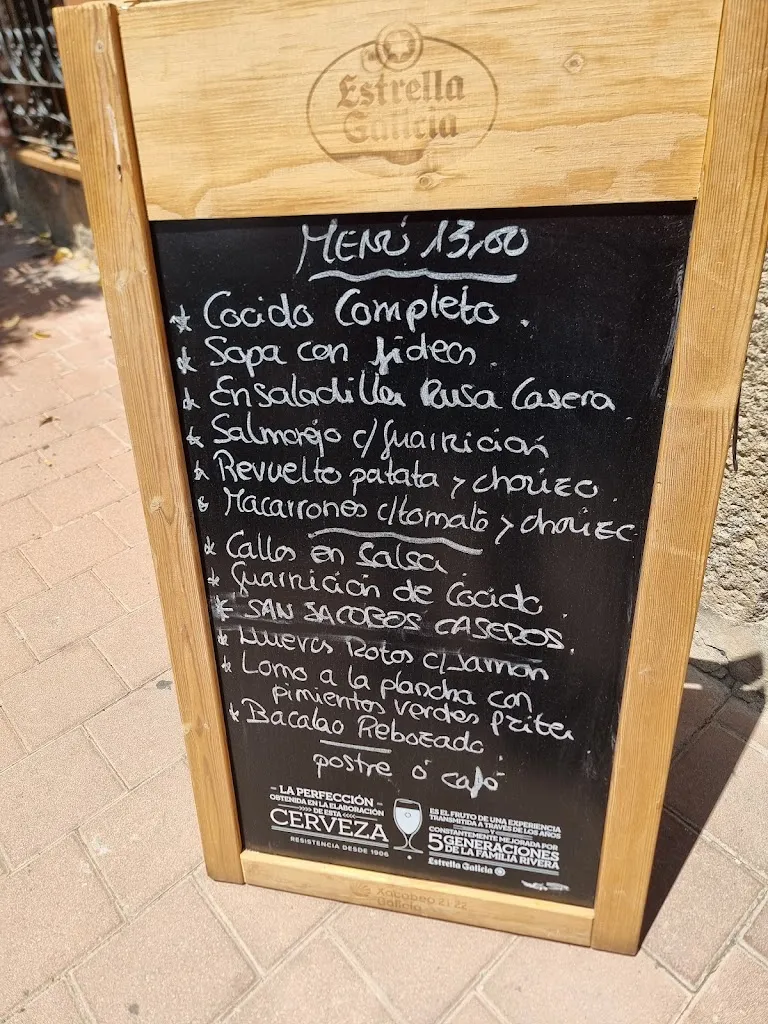 Estrella
Galicia
MENÚ 13,00
* Cocido Completo.
* Sopa con fideos.
* Ensaladilla Rusa Casera
* Salmorejo c/guarnición
* Revuelto patata y chorizo.
* Macarrones c/tomate y chorizo
* Callos en Salsa
* Guarnición de Cocido.
* SAN JACOBOS CASEROS.
* Huevos Rotos c/Jamon
* Lomo a la plancha con
pimientos verdes fritos
* Bacalao Rebozado
postre ó café
- LA PERFECCIÓN -
OBTENIDA EN LA ELABORACIÓN
DE ESTA
CERVEZA
RESISTENCIA DESDE 1906
ES EL FRUTO DE UNA EXPERIENCIA
TRANSMITIDA A TRAVÉS DE LOS AÑOS
Y
CONSTANTEMENTE MEJORADA POR
5 GENERACIONES
DE LA FAMILIA RIVERA
Estrella Galicia
Xacobeo 21·22
Galicia